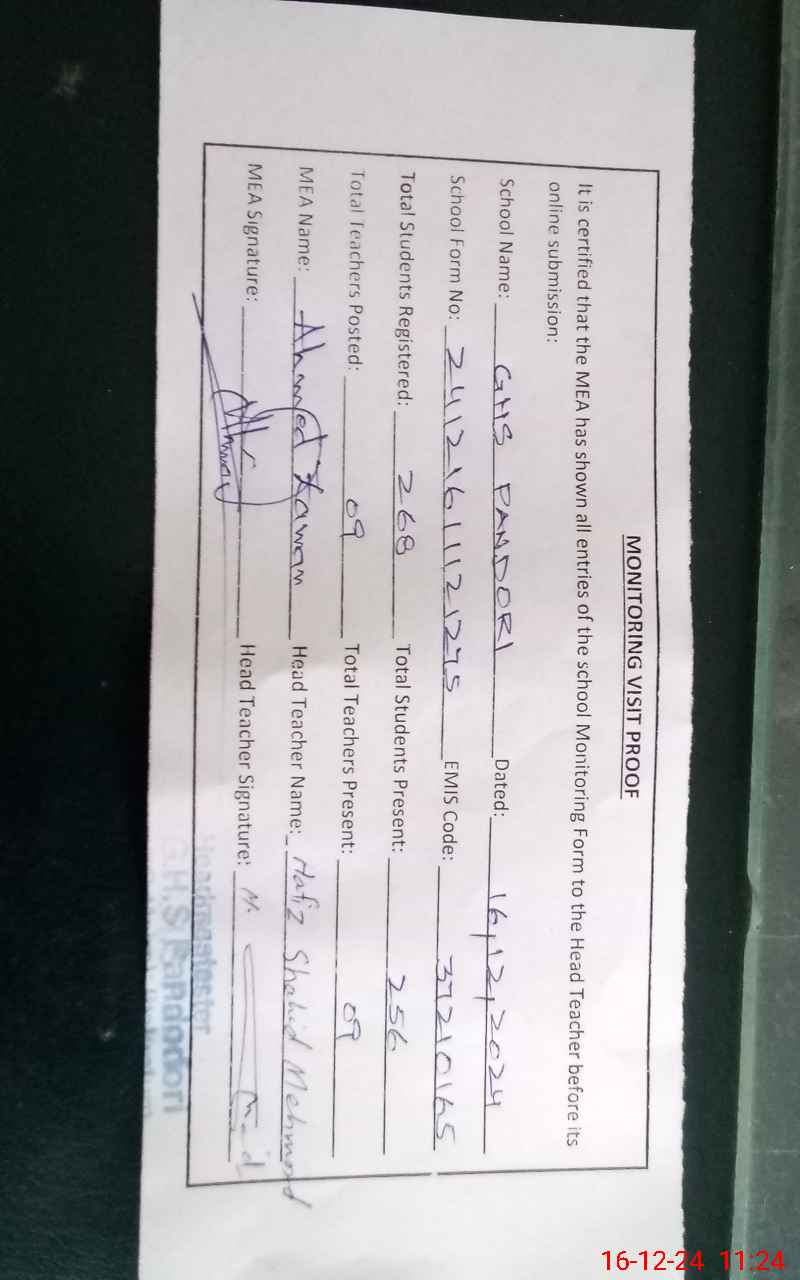 MONITORING VISIT PROOF
It is certified that the MEA has shown all entries of the school Monitoring Form to the Head Teacher before its
online submission:
School Name: GHS PANDORI Dated: 16,12,2024
School Form No: 241216111121275 EMIS Code: 37210165
Total Students Registered: 268 Total Students Present: 256
Total Teachers Posted: 09 Total Teachers Present: 09
MEA Name: Ahmed Head Teacher Name: Hafiz Shahid Mehmood
MEA Signature: Head Teacher Signature:
Headmaster
G.H.S
16-12-24 11:24